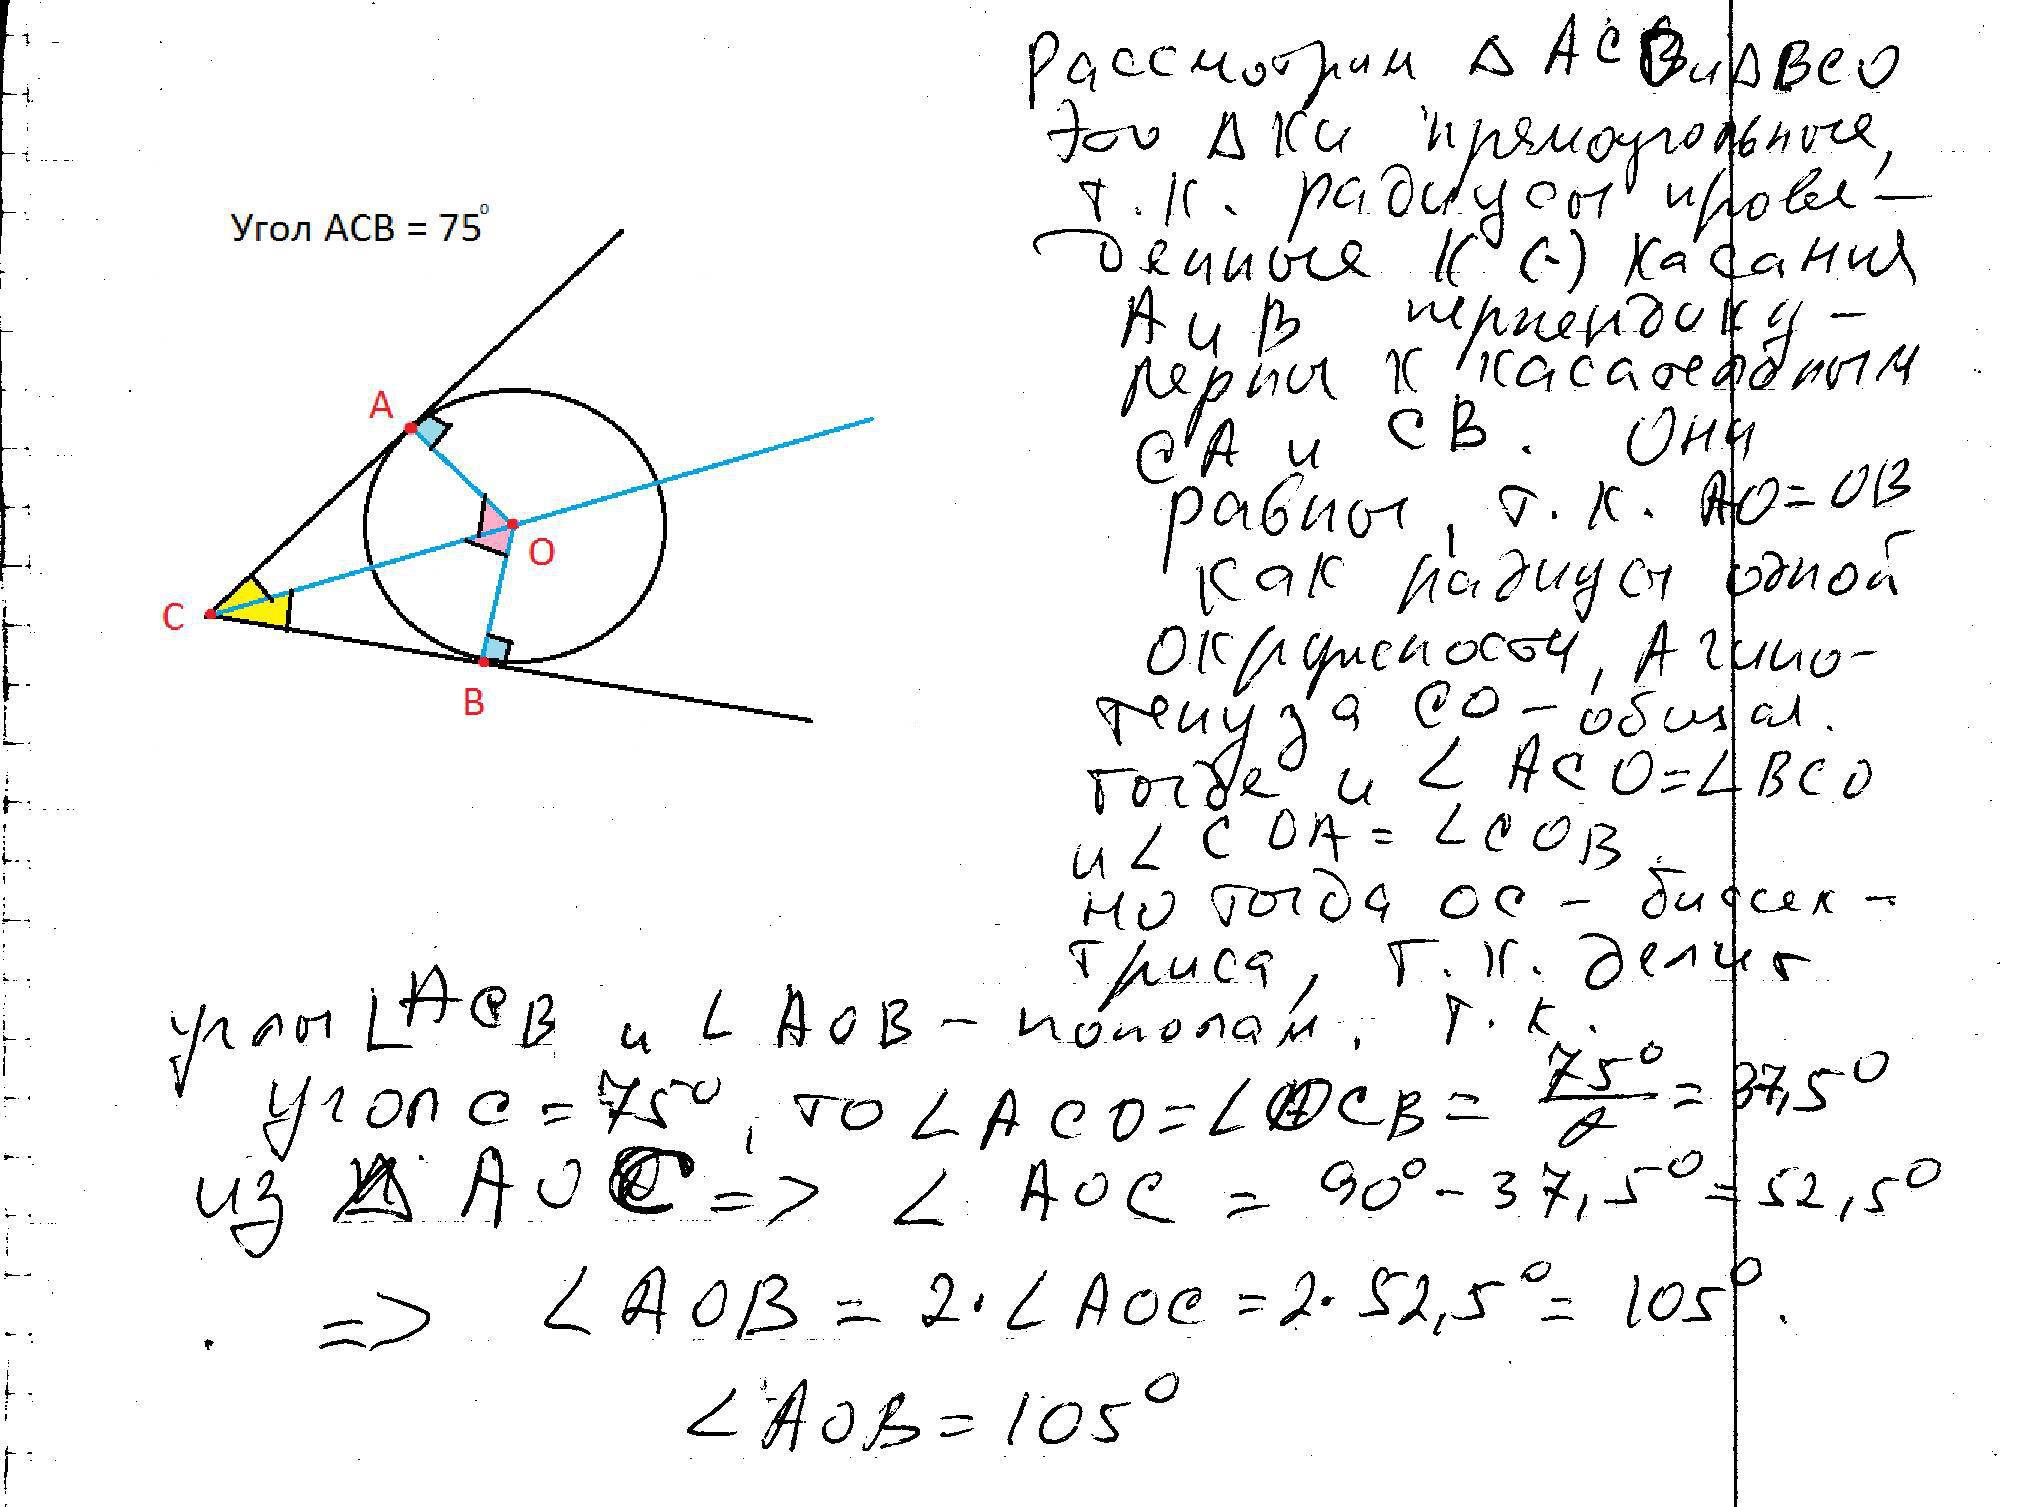 Угол АСВ = 75°
А
О
С
В
Рассмотрим Δ АСО и Δ ВСО
Это Δ ки прямоугольные,
т.к. радиусы прове-
денные к (·) касания
А и В перпендику-
лярны к касательным
СА и СВ. Они
равны, т.к. АО=ОВ
как радиусы одной
окружности, А гипо-
тенуза СО - общая.
тогда и ∠ АСО=∠ВСО
и ∠ СОА = ∠СОВ
но тогда ОС - биссек-
триса, т.к. делит
углы ∠АСВ и ∠ АОВ - пополам. т.к.
угол С = 75°, то ∠ АСО = ∠ОСВ = 75°/2 = 37,5°
из Δ АОС => ∠ АОС = 90° - 37,5° = 52,5°
=> ∠ АОВ = 2·∠АОС = 2·52,5° = 105°.
∠АОВ = 105°